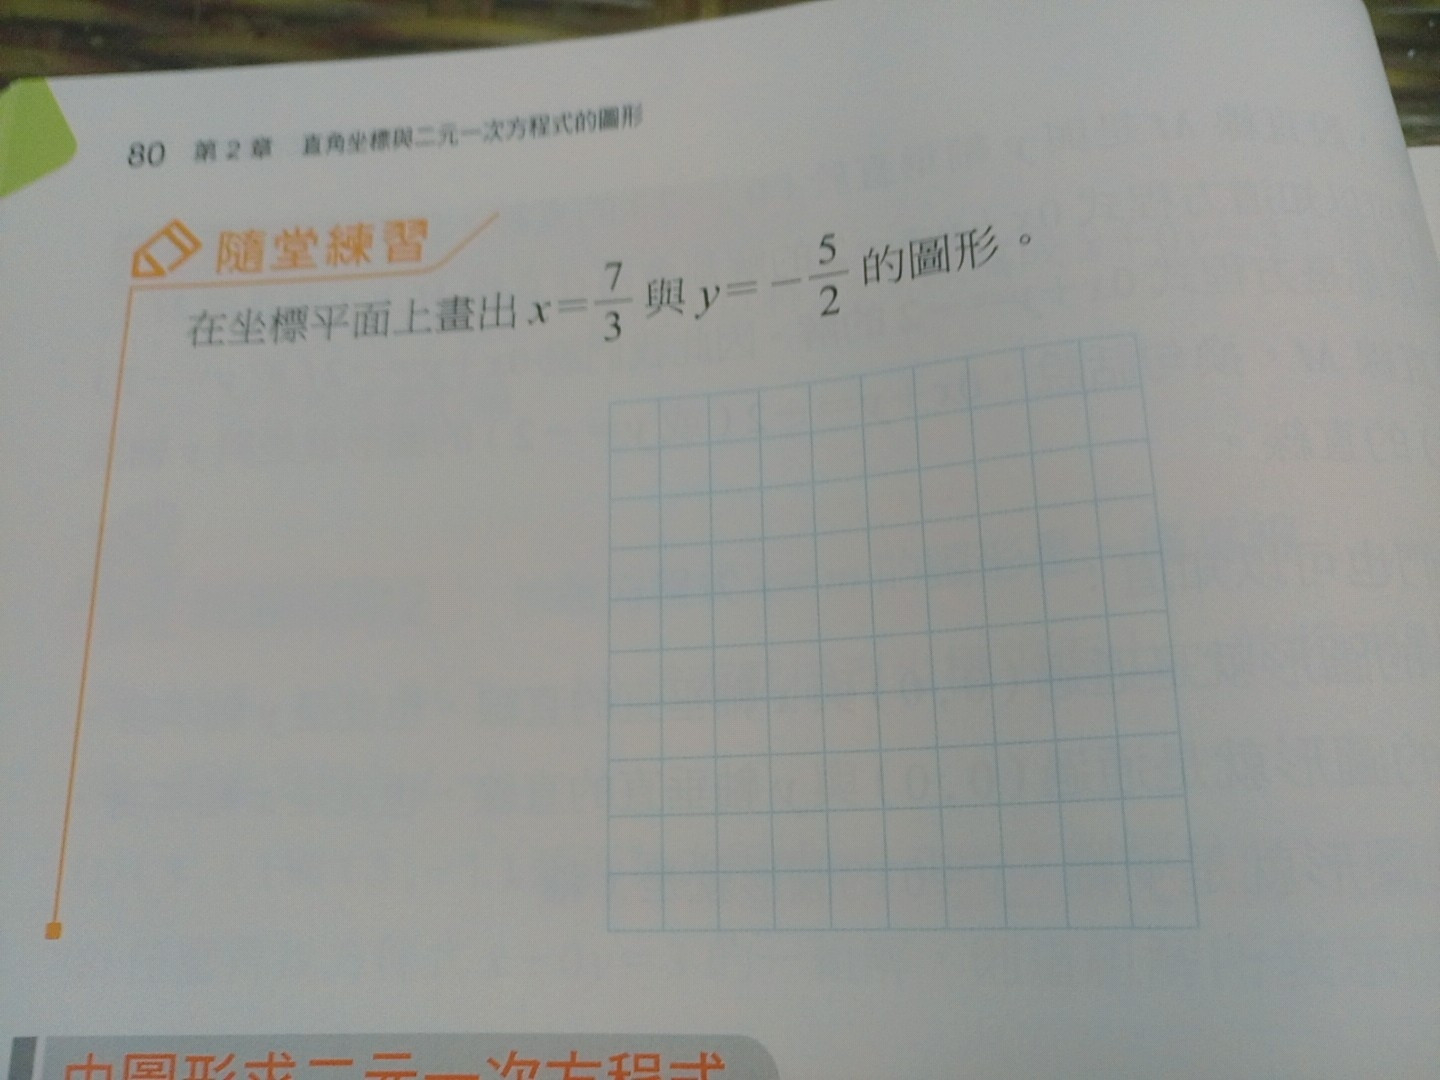 80 第2章 直角坐標與二元一次方程式的圖形
隨堂練習
在坐標平面上畫出 x=7/3 與 y=-5/2 的圖形。
由圖形求二元一次方程式